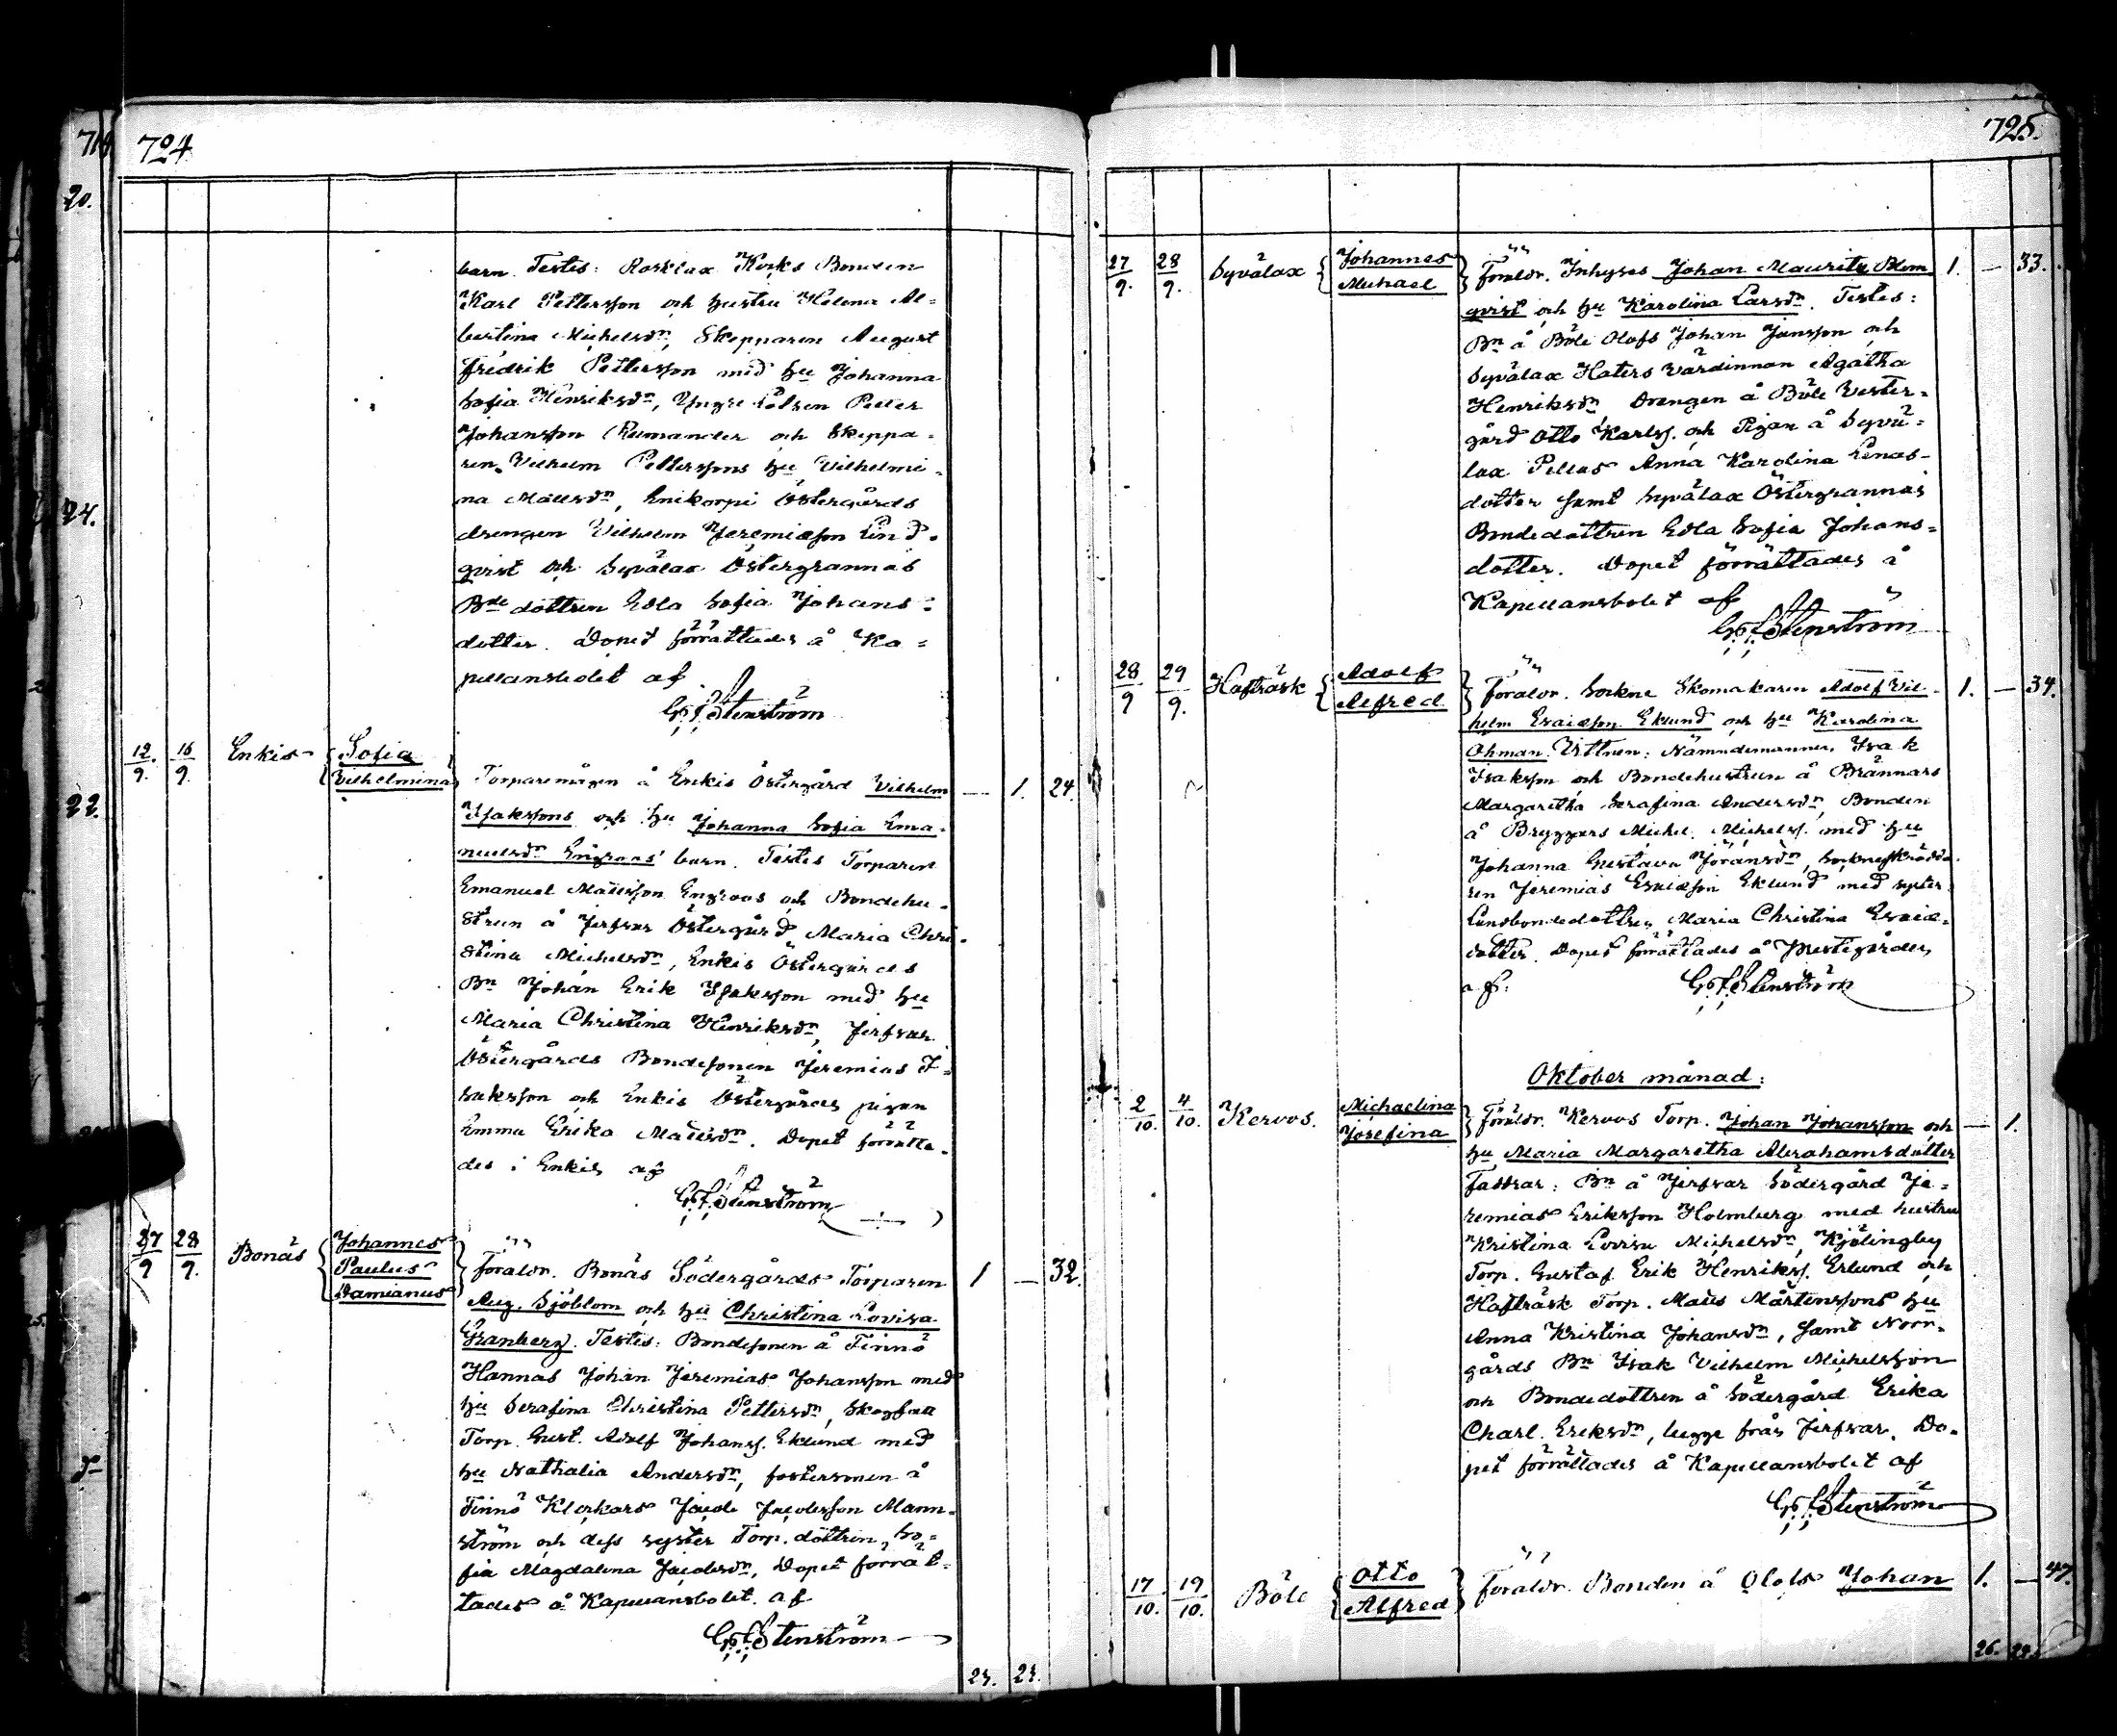 724
barn. Testes: Rosklax Kocks Bonden
Karl Pettersson och hustru Helena Al=
bertina Michelsdr, Skepparen August
Fredrik Pettersson med hu Johanna
Sofia Henriksdr, Yngre Petter
Johansson och Skeppa=
ren Vilhelm Petterssons hu Vilhelmi=
na Mattsdr, Östergårds
drengen Vilhelm Jeremiasson Lind=
qvist och Syvälax Östergrannas
Bde dottren Edla Sofia Johans=
dotter. Dopet förrättades å Ka=
pellansbolet af
G. F. Stenström
12/9. 16/9. Enkis Sofia
Vilhelmina Torparemågen å Enkis Östergård Vilhelm — 1. 24.
Isakssons och hu Johanna Sofia Ema=
nuelsdr Engroos' barn. Testes Torparen
Emanuel Mattsson Engroos och Bondehu=
strun å Jerfvar Östergård Maria Chri=
stina Michelsdr, Enkis Östergårds
Bn Johan Erik Isaksson med hu
Maria Christina Henriksdr, Jerfvar
Östergårds Bondesonen Jeremias I=
saksson och Enkis Östergårds pigan
Emma Erika Mattsdr. Dopet förrätta=
des i Enkis af
G. F. Stenström
27/9 28/9. Bonäs Johannes
Paulus
Damianus Föräldr. Bonäs Södergårds Torparen 1 — 32.
Aug. Sjöblom och hu Christina Lovisa
Granberg. Testes: Bondesonen å Finnö
Hannas Johan Jeremias Johansson med
hu Serafina Christina Pettersdr,
Torp. Gust. Adolf Johanss. Eklund med
hu Nathalia Andersdr, fostersonen å
Finnö Klockars Jacob Jacobsson Mann=
ström och dess syster Torp. dottren So=
fia Magdalena Jacobsdr, Dopet förrät=
tades å Kapellansbolet af
G. F. Stenström
23. 23.
725.
27/9. 28/9. Syvälax Johannes
Michael Föräldr. Inhyses Johan Mauritz Blom 1. — 33.
qvist och hu Karolina Larsdr. Testes:
Bn å Böle Olofs Johan Jansson och
Syvälax Haters Värdinnan Agatha
Henriksdr, Drengen å Böle Vester=
gård Otto Karlss. och Pigan å Syvä=
lax Pellas Anna Karolina Lenas=
dotter samt Syvälax Östergrannas
Bondedottren Edla Sofia Johans=
dotter. Dopet förrättades å
Kapellansbolet af
G. F. Stenström
28/9 29/9. Hafträsk Adolf
Alfred Föräldr. Sockne Skomakaren Adolf Vil= 1. — 34.
helm Esaiasson Eklund och hu Karolina
Öhman. Vittnen: Nämndemannen Isak
Isaksson och Bondehustrun å Brännars
Margaretha Serafina Andersdr, Bonden
å Bryggars Michel Michelss. med hu
Johanna Gustava Göransdr, Sockneskrädda=
ren Jeremias Esaiasson Eklund med syster
Landbondedottren Maria Christina Esaiæ=
dotter. Dopet förrättades å Prestegården
af: G. F. Stenström
Oktober månad:
2/10. 4/10. Kervos. Michaelina
Josefina Föräldr. Kervos Torp. Johan Johansson och — 1.
hu Maria Margaretha Abrahamsdotter
Faddrar: Bn å Jerfvar Södergård Je=
remias Eriksson Holmberg med hustru
Kristina Lovisa Michelsdr, Kjölingby
Torp. Gustaf Erik Henrikss. Erlund och
Hafträsk Torp. Matts Mårtenssons hu
Anna Kristina Johansdr, samt Norr=
gårds Bn Isak Vilhelm Michelsson
och Bondedottren å Södergård Erika
Charl. Eriksdr, begge från Jerfvar. Do=
pet förrättades å Kapellansbolet af
G. F. Stenström
17/10. 19/10. Böle Otto
Alfred Föräldr. Bonden å Olofs Johan 1. — 47.
26.